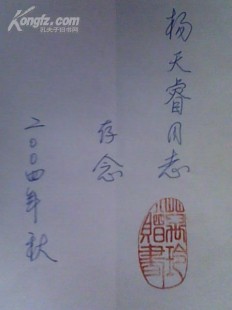 Kongfz.com
孔夫子旧书网
杨天睿同志
存念
二〇〇四年秋
赠书